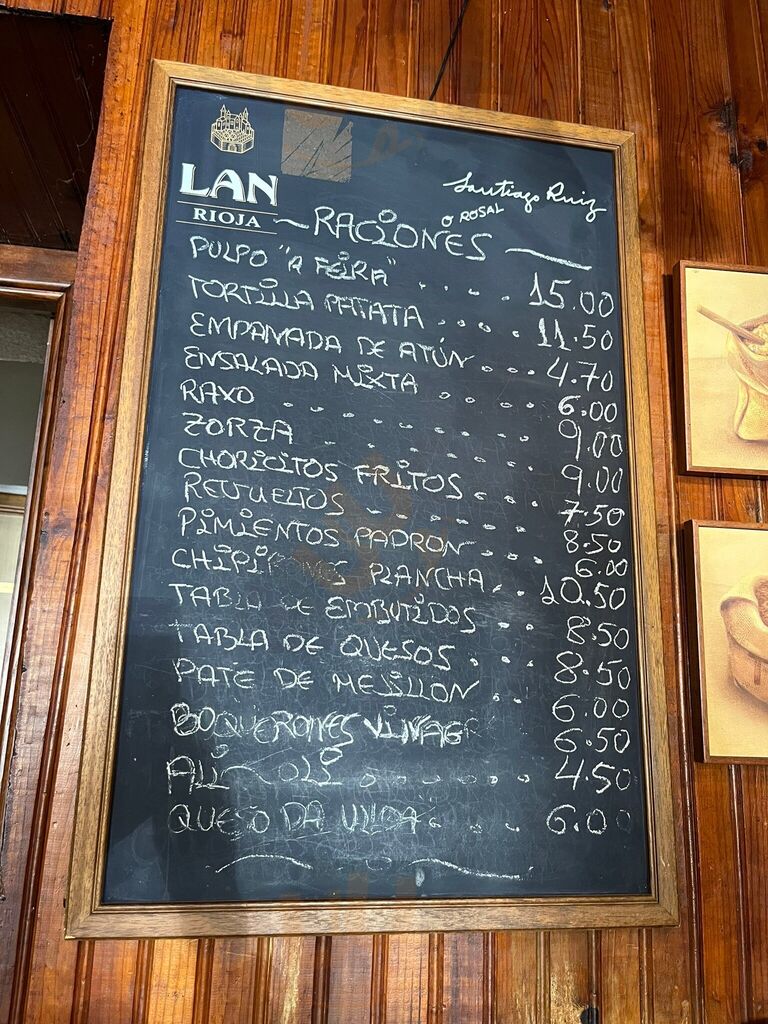 LAN
RIOJA
Santiago Ruiz
O ROSAL
~ RACIONES ~
PULPO "A FEIRA" . . . . 15.00
TORTILLA PATATA . . . . 11.50
EMPANADA DE ATÚN . . . 4.70
ENSALADA MIXTA . . . . 6.00
RAXO . . . . . . . 9.00
ZORZA . . . . . . 9.00
CHORICITOS FRITOS . . . . 7.50
REVUELTOS . . . . . . 8.50
PIMIENTOS PADRON . . . . 6.00
PLANCHA . . 10.50
TABLA DE EMBUTIDOS . . . 8.50
TABLA DE QUESOS . . . 8.50
PATE DE MEJILLON . . 6.00
BOQUERONES VINAG 6.50
ALI OLI . . . . . . . 4.50
QUESO DA . . . 6.00